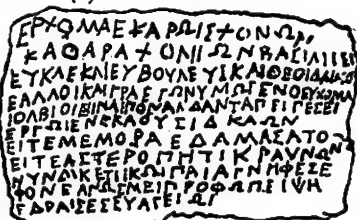 ΕΡΧΟΜΑΕΚΑΡΩΙΣΧΟΝΩΝ
ΚΑΘΑΡΑΧΟΝΙΩΝΒΑΣΙΛΙΕΙ
ΕΥΚΛΕΚΑΕΥΒΟΥΛΕΥΣΙΚΑΙΘΕΟΙΔΑΙΜΟ
ΕΑΛΛΟΙΚΑΙΓΡΑΕΓΩΝΥΜΩΓΕΝΟΕΥΧΟΜΑ
ΙΟΛΒΙΟΙΕΙΝΑΙΠΟΝΑΙΔΑΝΤΑΠΕΙΓΕΣΕΙ
ΕΡΓΩΙΕΝΕΚΑΟΥΣΙΔΚΑΩΝ
ΕΙΤΕΜΕΜΟΡΑΕΔΑΜΑΣΑΤΟ
ΕΙΤΕΑΣΤΕΡΟΠΗΤΙΚΡΑΥΝΩΝ
ΝΥΝΔΙΚΕΤΙΙΚΩΙΠΑΙΑΓΝΗΦΕΣΕ
ΦΟΝΕΑΝΩΣΜΕΙΓΡΟΦΩΠΕΙΨΗ
ΕΔΡΑΙΣΕΣΕΥΑΓΕΙΩΙ